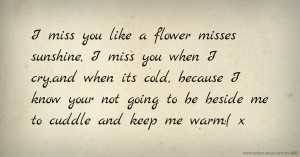 I miss you like a flower misses
sunshine, I miss you when I
cry,and when its cold, because I
know your not going to be beside me
to cuddle and keep me warm:( x